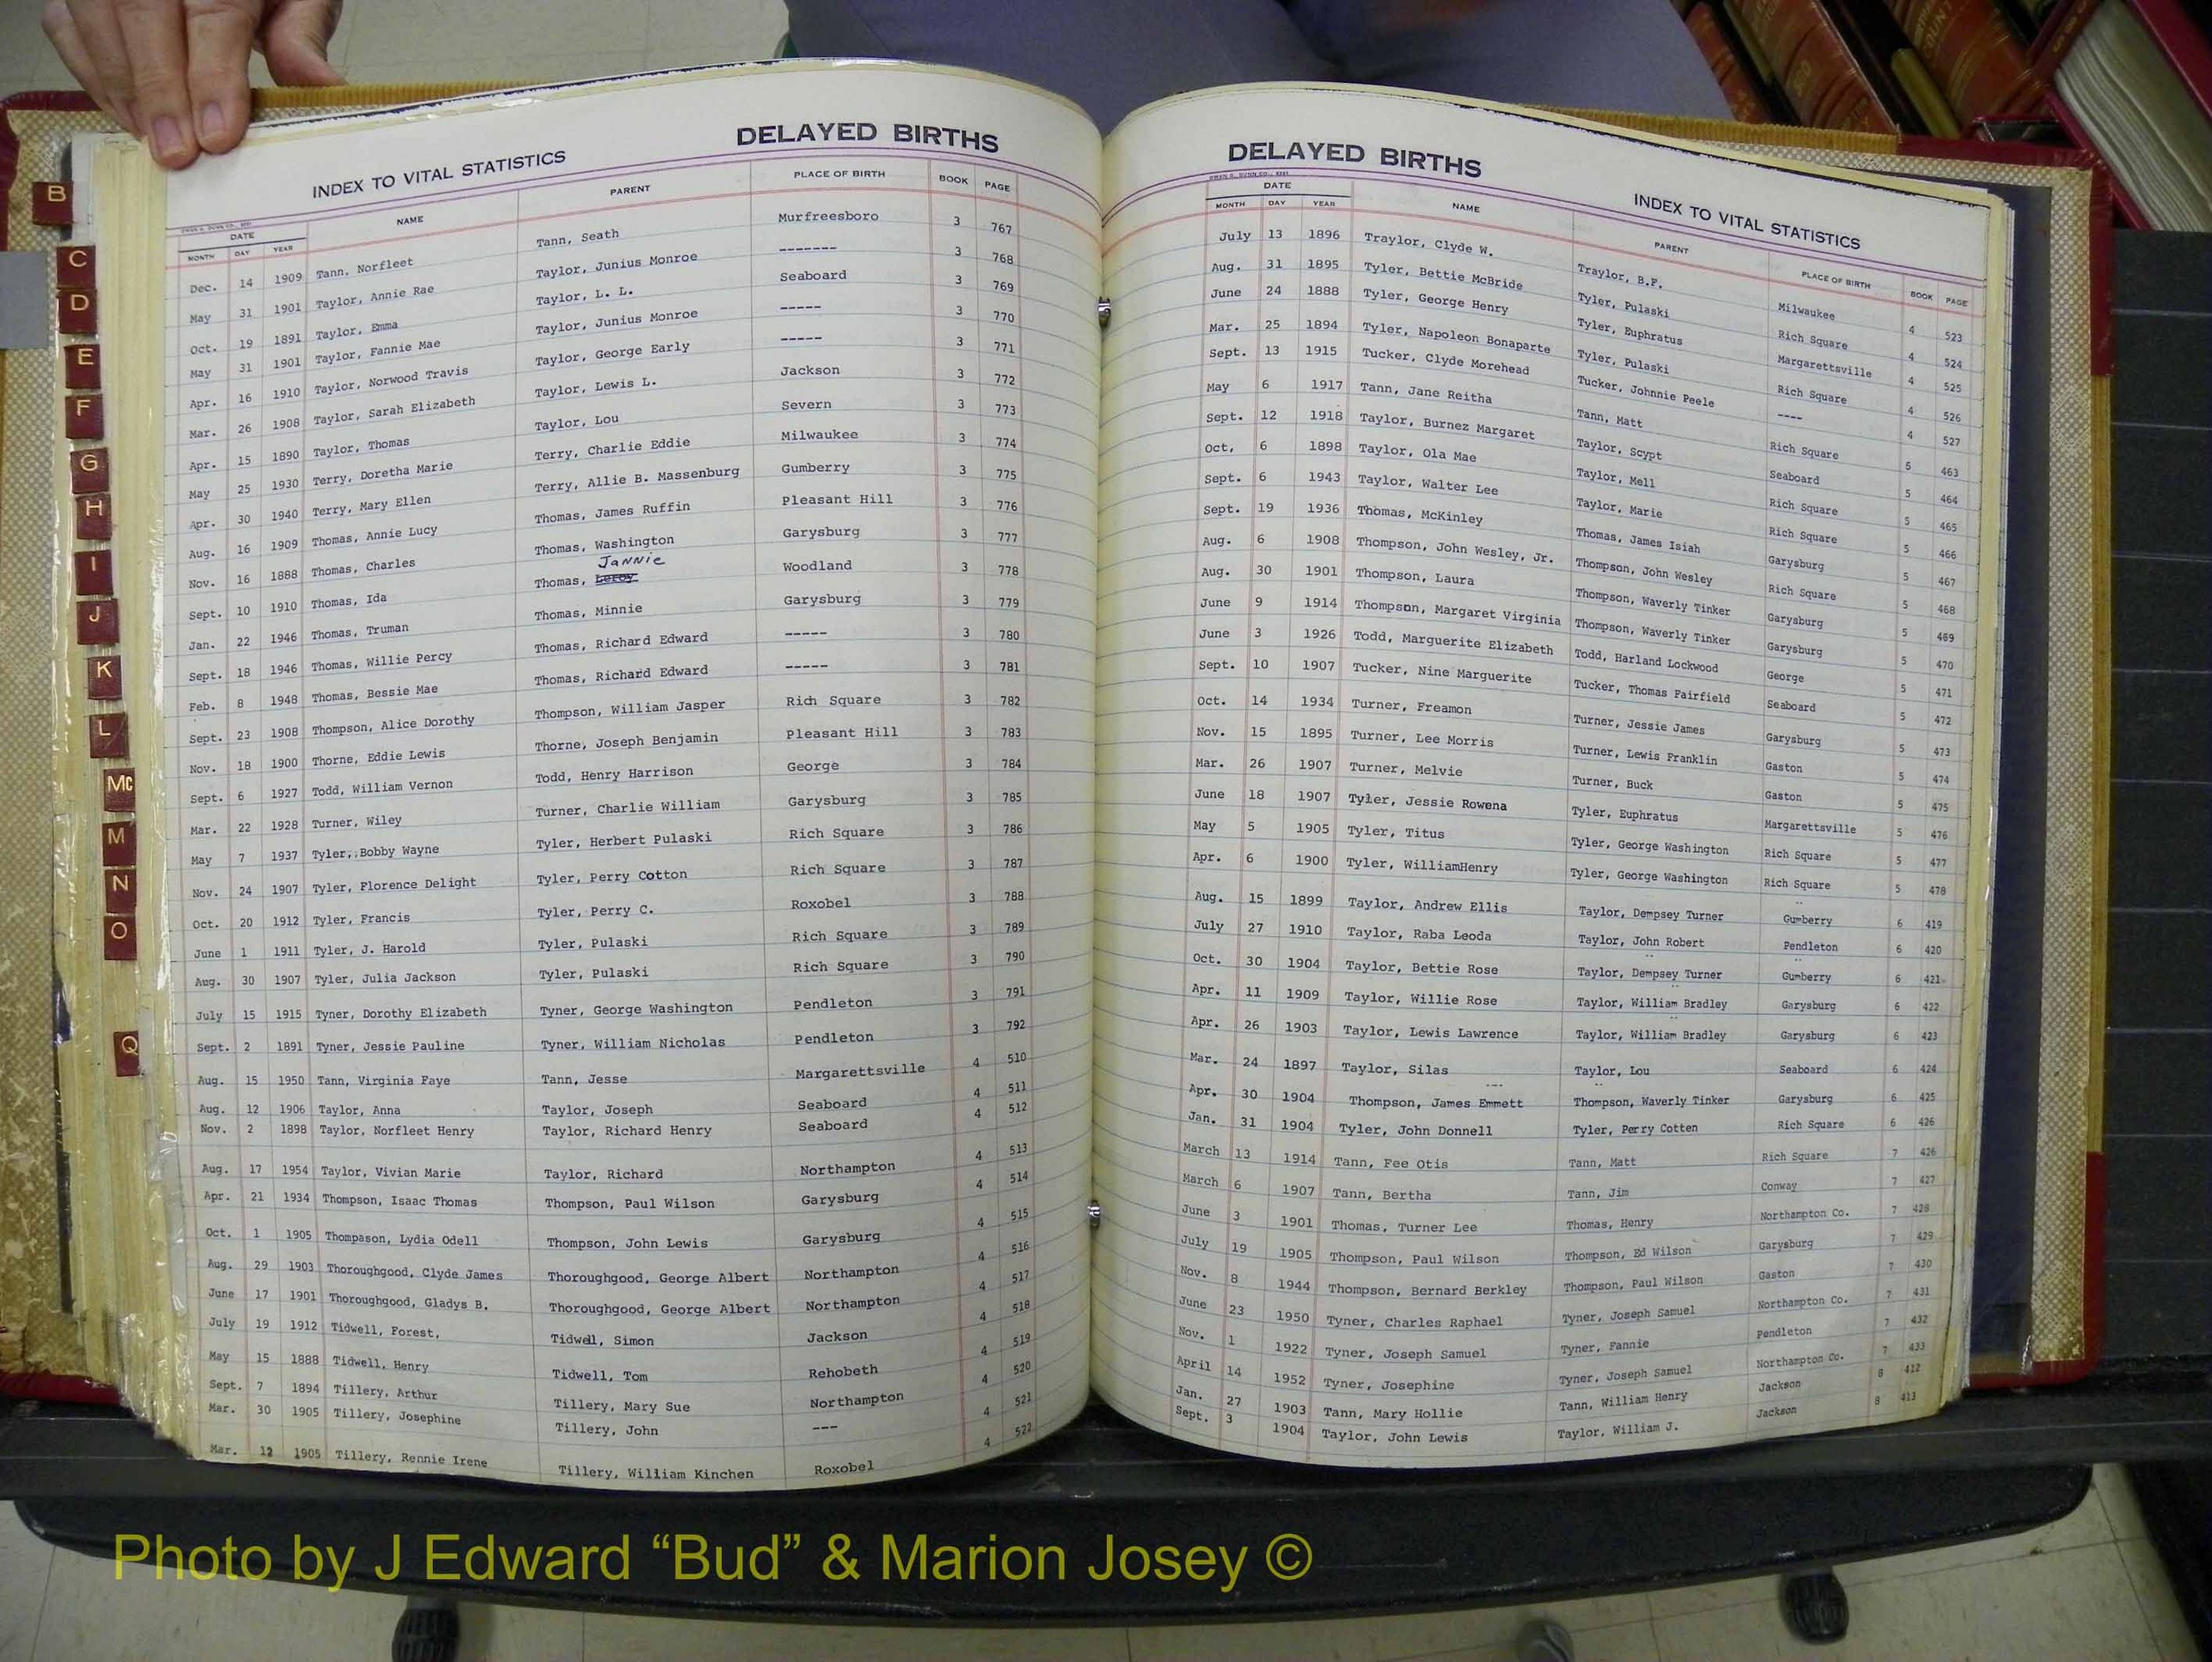 DELAYED BIRTHS
INDEX TO VITAL STATISTICS
DATE NAME PARENT PLACE OF BIRTH BOOK PAGE
MONTH DAY YEAR
Dec. 14 1909 Tann, Norfleet Tann, Seath Murfreesboro 3 767
May 31 1901 Taylor, Annie Rae Taylor, Junius Monroe ------- 3 768
Oct. 19 1891 Taylor, Emma Taylor, L. L. Seaboard 3 769
May 31 1901 Taylor, Fannie Mae Taylor, Junius Monroe ----- 3 770
Apr. 16 1910 Taylor, Norwood Travis Taylor, George Early ----- 3 771
Mar. 26 1908 Taylor, Sarah Elizabeth Taylor, Lewis L. Jackson 3 772
Apr. 15 1890 Taylor, Thomas Taylor, Lou Severn 3 773
May 25 1930 Terry, Doretha Marie Terry, Charlie Eddie Milwaukee 3 774
Apr. 30 1940 Terry, Mary Ellen Terry, Allie B. Massenburg Gumberry 3 775
Aug. 16 1909 Thomas, Annie Lucy Thomas, James Ruffin Pleasant Hill 3 776
Nov. 16 1888 Thomas, Charles Thomas, Washington Garysburg 3 777
Jannie
Sept. 10 1910 Thomas, Ida Thomas, Leroy Woodland 3 778
Jan. 22 1946 Thomas, Truman Thomas, Minnie Garysburg 3 779
Sept. 18 1946 Thomas, Willie Percy Thomas, Richard Edward ----- 3 780
Feb. 8 1948 Thomas, Bessie Mae Thomas, Richard Edward ----- 3 781
Sept. 23 1908 Thompson, Alice Dorothy Thompson, William Jasper Rich Square 3 782
Nov. 18 1900 Thorne, Eddie Lewis Thorne, Joseph Benjamin Pleasant Hill 3 783
Sept. 6 1927 Todd, William Vernon Todd, Henry Harrison George 3 784
Mar. 22 1928 Turner, Wiley Turner, Charlie William Garysburg 3 785
May 7 1937 Tyler, Bobby Wayne Tyler, Herbert Pulaski Rich Square 3 786
Nov. 24 1907 Tyler, Florence Delight Tyler, Perry Cotton Rich Square 3 787
Oct. 20 1912 Tyler, Francis Tyler, Perry C. Roxobel 3 788
June 1 1911 Tyler, J. Harold Tyler, Pulaski Rich Square 3 789
Aug. 30 1907 Tyler, Julia Jackson Tyler, Pulaski Rich Square 3 790
July 15 1915 Tyner, Dorothy Elizabeth Tyner, George Washington Pendleton 3 791
Sept. 2 1891 Tyner, Jessie Pauline Tyner, William Nicholas Pendleton 3 792
Aug. 15 1950 Tann, Virginia Faye Tann, Jesse Margarettsville 4 510
Aug. 12 1906 Taylor, Anna Taylor, Joseph Seaboard 4 511
Nov. 2 1898 Taylor, Norfleet Henry Taylor, Richard Henry Seaboard 4 512
Aug. 17 1954 Taylor, Vivian Marie Taylor, Richard Northampton 4 513
Apr. 21 1934 Thompson, Isaac Thomas Thompson, Paul Wilson Garysburg 4 514
Oct. 1 1905 Thompason, Lydia Odell Thompson, John Lewis Garysburg 4 515
Aug. 29 1903 Thoroughgood, Clyde James Thoroughgood, George Albert Northampton 4 516
June 17 1901 Thoroughgood, Gladys B. Thoroughgood, George Albert Northampton 4 517
July 19 1912 Tidwell, Forest, Tidwell, Simon Jackson 4 518
May 15 1888 Tidwell, Henry Tidwell, Tom Rehobeth 4 519
Sept. 7 1894 Tillery, Arthur Tillery, Mary Sue Northampton 4 520
Mar. 30 1905 Tillery, Josephine Tillery, John --- 4 521
Mar. 12 1905 Tillery, Rennie Irene Tillery, William Kinchen Roxobel 4 522
DELAYED BIRTHS
INDEX TO VITAL STATISTICS
DATE NAME PARENT PLACE OF BIRTH BOOK PAGE
MONTH DAY YEAR
July 13 1896 Traylor, Clyde W. Traylor, B.F. Milwaukee 4 523
Aug. 31 1895 Tyler, Bettie McBride Tyler, Pulaski Rich Square 4 524
June 24 1888 Tyler, George Henry Tyler, Euphratus Margarettsville 4 525
Mar. 25 1894 Tyler, Napoleon Bonaparte Tyler, Pulaski Rich Square 4 526
Sept. 13 1915 Tucker, Clyde Morehead Tucker, Johnnie Peele ---- 4 527
May 6 1917 Tann, Jane Reitha Tann, Matt Rich Square 5 463
Sept. 12 1918 Taylor, Burnez Margaret Taylor, Scypt Seaboard 5 464
Oct, 6 1898 Taylor, Ola Mae Taylor, Mell Rich Square 5 465
Sept. 6 1943 Taylor, Walter Lee Taylor, Marie Rich Square 5 466
Sept. 19 1936 Thomas, McKinley Thomas, James Isiah Garysburg 5 467
Aug. 6 1908 Thompson, John Wesley, Jr. Thompson, John Wesley Rich Square 5 468
Aug. 30 1901 Thompson, Laura Thompson, Waverly Tinker Garysburg 5 469
June 9 1914 Thompson, Margaret Virginia Thompson, Waverly Tinker Garysburg 5 470
June 3 1926 Todd, Marguerite Elizabeth Todd, Harland Lockwood George 5 471
Sept. 10 1907 Tucker, Nine Marguerite Tucker, Thomas Fairfield Seaboard 5 472
Oct. 14 1934 Turner, Freamon Turner, Jessie James Garysburg 5 473
Nov. 15 1895 Turner, Lee Morris Turner, Lewis Franklin Gaston 5 474
Mar. 26 1907 Turner, Melvie Turner, Buck Gaston 5 475
June 18 1907 Tyler, Jessie Rowena Tyler, Euphratus Margarettsville 5 476
May 5 1905 Tyler, Titus Tyler, George Washington Rich Square 5 477
Apr. 6 1900 Tyler, WilliamHenry Tyler, George Washington Rich Square 5 478
Aug. 15 1899 Taylor, Andrew Ellis Taylor, Dempsey Turner Gumberry 6 419
July 27 1910 Taylor, Raba Leoda Taylor, John Robert Pendleton 6 420
Oct. 30 1904 Taylor, Bettie Rose Taylor, Dempsey Turner Gumberry 6 421
Apr. 11 1909 Taylor, Willie Rose Taylor, William Bradley Garysburg 6 422
Apr. 26 1903 Taylor, Lewis Lawrence Taylor, William Bradley Garysburg 6 423
Mar. 24 1897 Taylor, Silas Taylor, Lou Seaboard 6 424
Apr. 30 1904 Thompson, James Emmett Thompson, Waverly Tinker Garysburg 6 425
Jan. 31 1904 Tyler, John Donnell Tyler, Perry Cotten Rich Square 6 426
March 13 1914 Tann, Fee Otis Tann, Matt Rich Square 7 426
March 6 1907 Tann, Bertha Tann, Jim Conway 7 427
June 3 1901 Thomas, Turner Lee Thomas, Henry Northampton Co. 7 428
July 19 1905 Thompson, Paul Wilson Thompson, Ed Wilson Garysburg 7 429
Nov. 8 1944 Thompson, Bernard Berkley Thompson, Paul Wilson Gaston 7 430
June 23 1950 Tyner, Charles Raphael Tyner, Joseph Samuel Northampton Co. 7 431
Nov. 1 1922 Tyner, Joseph Samuel Tyner, Fannie Pendleton 7 432
April 14 1952 Tyner, Josephine Tyner, Joseph Samuel Northampton Co. 7 433
Jan. 27 1903 Tann, Mary Hollie Tann, William Henry Jackson 8 412
Sept. 3 1904 Taylor, John Lewis Taylor, William J. Jackson 8 413
B
C
D
E
F
G
H
I
J
K
L
Mc
M
N
O
Q
Photo by J Edward “Bud” & Marion Josey ©